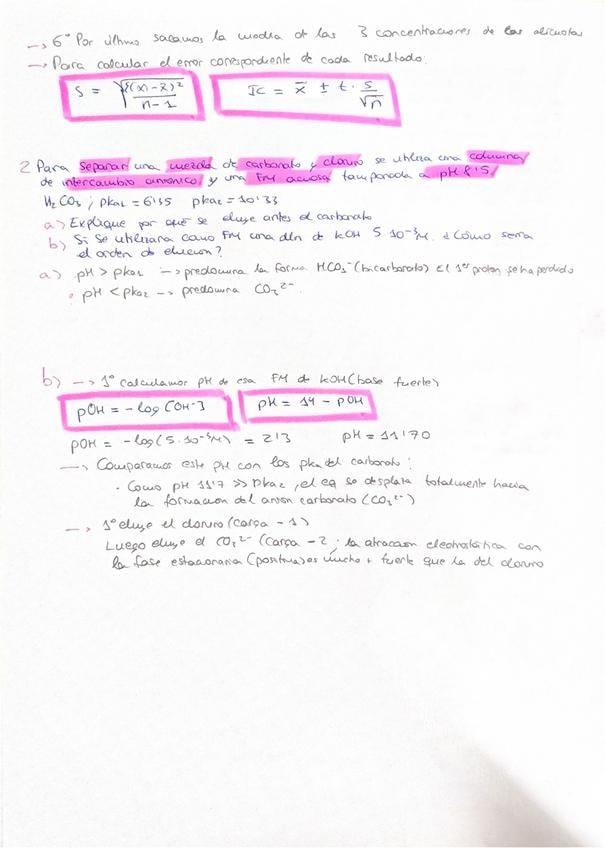 → 6º Por último sacamos la media de las 3 concentraciones de las alicuotas
→ Para calcular el error correspondiente de cada resultado.
S = √(Σ(xi - x̄)² / n - 1)
IC = x̄ ± t · s/√n
2 Para separar una mezcla de carbonato y cloruro se utiliza una columna
de intercambio anionico, y una FM acuosa tamponada a pH 8'5,
H₂CO₃ ; pka₁ = 6'35 pka₂ = 10'33
a) Explique por qué se eluye antes el carbonato
b) Si se utilizara como FM una dln de KOH 5·10⁻³M. ¿Cómo seria
el orden de elucion?
a) · pH > pka₁ → predomina la forma HCO₃⁻ (bicarbonato) El 1er proton se ha perdido
· pH < pka₂ → predomina CO₃²⁻
b) → 1º calculamos pH de esa FM de KOH (base fuerte)
pOH = -log [OH⁻]
pH = 14 - pOH
pOH = -log (5·10⁻³M) = 2'3 pH = 11'70
→ Comparamos este pH con los pka del carbonato:
· Como pH 11'7 >> pka₂, el eq se desplaza totalmente hacia
la formacion del anion carbonato (CO₃²⁻)
→ 1º eluye el cloruro (carga -1)
Luego eluye el CO₃²⁻ (carga -2; la atraccion electrostática con
la fase estacionaria (positiva) es mucho + fuerte que la del cloruro